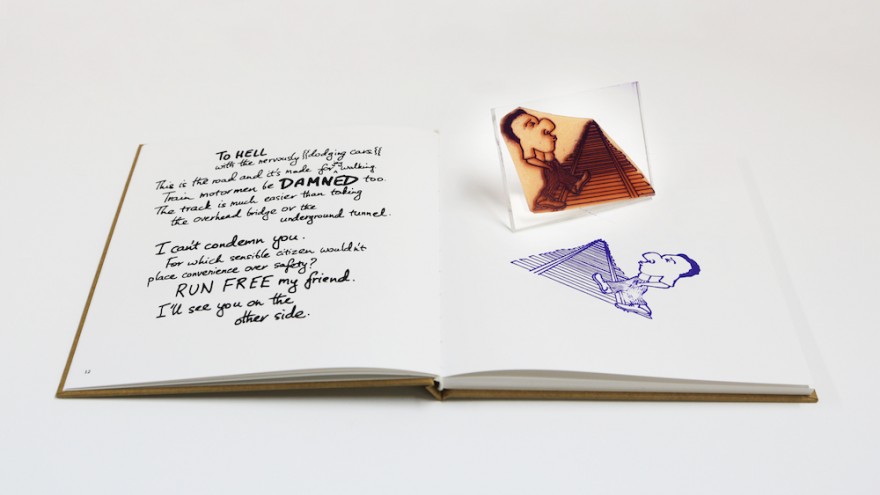 TO HELL
with the nervously {{dodging cars}}
This is the road and it's made for walking
Train motormen be DAMNED too.
The track is much easier than taking
the overhead bridge or the
underground tunnel.
I can't condemn you.
For which sensible citizen wouldn't
place convenience over safety?
RUN FREE my friend.
I'll see you on the
other side.